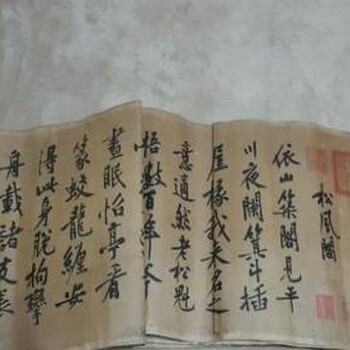 松風閣
依山築閣見平
川夜闌箕斗插
屋椽我来名之
意適然老松魁
梧數百年
晝眠怡亭看
篆蛟龍纏安
得此身脫拘攣
舟載諸友長